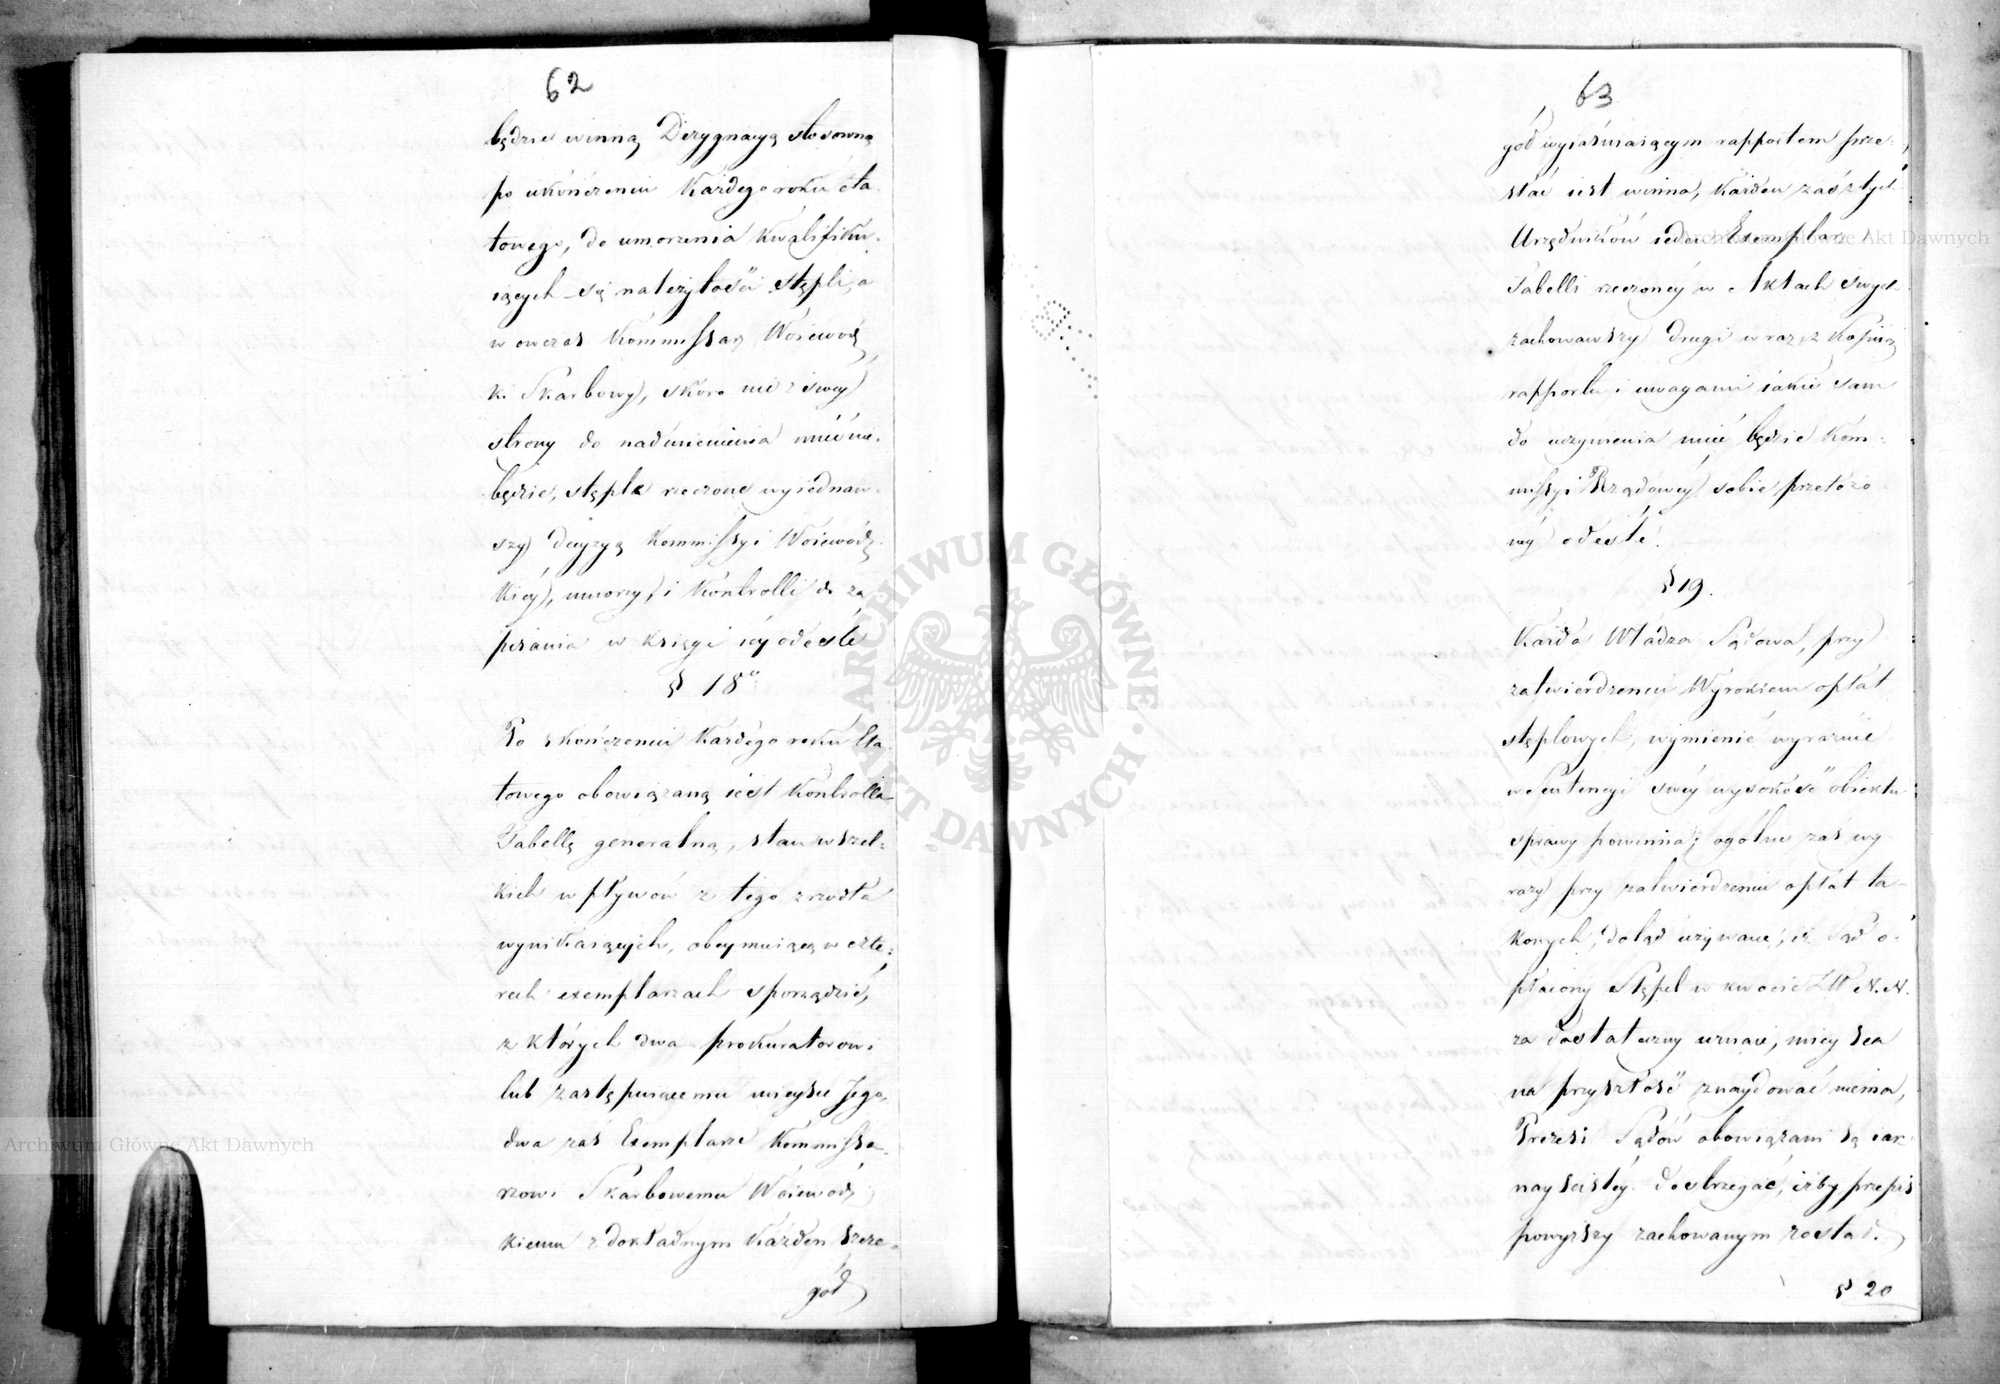 62
będzie winną Dezygnacyą stosowną
po ukończeniu każdego roku eta
towego, do umorzenia kwalifiku-
iących się należytości stępli, a
w owczas Kommissarz Wóiewódz
ki Skarbowy, skoro nic z swey
strony do nadmienienia mieć nie
będzie, stęple rzeczone wyiednaw-
szy decyzyą Kommissyi Wóiewódz
kiéy, umorzy, i Kontrolli do za
pisania w księgi iéy odéśle
§ 18º
Po skończeniu każdego roku Eta
towego obowiązaną iest Kontrolla
Tabellę generalną, stan wszel-
kich wpływów z tego zrzodła
wynikaiących, obeymuiącą w czte-
rech exemplarzach sporządzić,
z których dwa prokuratorowi
lub zastępuiącemu mieysce Jego,
dwa zaś Exemplarze Kommissa-
rzowi Skarbowemu Wóiewódz
kiemu z dokładnym każden szcze-
gół
63
gół wyiaśniaiącym rapportem prze-
słać iest winna, każden zaś z tych
Urzędników ieden Exemplarz
Tabelli rzeczonéy w Aktach swych
zachowawszy drugi wraz z kopiią
rapportu i uwagami iakie sam
do uczynienia mieć będzie Kom-
missyi Rządowéy sobie przełożo
néy odéśle.
§ 19.
Każda Władza Sądowa, przy
zatwierdzeniu Wyrokiem opłat
stęplowych, wymienić wyraźnie
w Sentencyi swéy wysokość obiektu
sprawy powinna; ogólne zaś wy
razy przy zatwierdzeniu opłat ta-
kowych, dotąd używane, iż Sąd o-
płacony Stępel w kwocie Zł N.N.
za dostateczny uznaie, mieysca
na przyszłość znaydować niema,
Prezesi Sądów obowiązani są iak
nayściśléy dostrzegać, iżby przepis
powyższy zachowanym został.
§ 20
ARCHIWUM GŁÓWNE AKT DAWNYCH
Archiwum Główne Akt Dawnych
Archiwum Główne Akt Dawnych